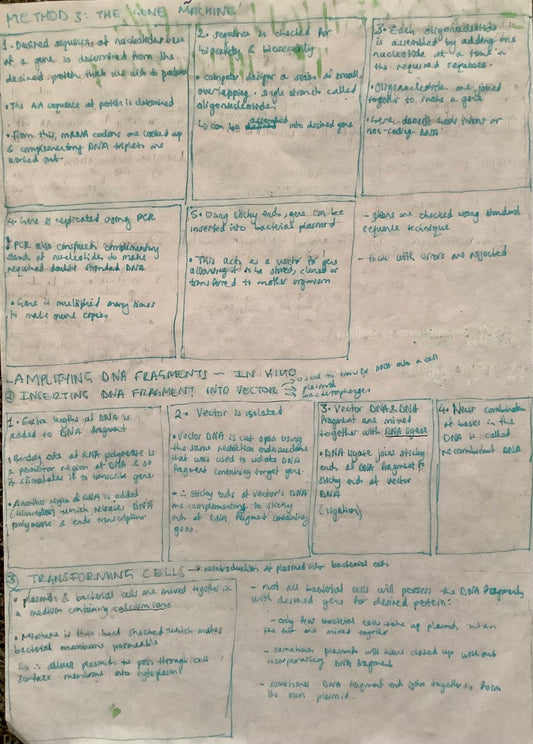 METHOD 3: THE GENE MACHINE
1. Desired sequence of nucleotide bases
of a gene is determined from the
desired protein that we wish to produce
• The AA sequence of protein is determined
• From this, mRNA codons are looked up
& complementary DNA triplets are
worked out.
2. Sequence is checked for
biosafety & biosecurity
• computer designs a series of small,
overlapping, single strands called
oligonucleotides
↳ can be assembled into desired gene
3. Each oligonucleotide
is assembled by adding one
nucleotide at a time in
the required sequence.
• Oligonucleotides are joined
together to make a gene
• Gene doesn't have introns or
non-coding DNA
4. Gene is replicated using PCR
PCR also constructs complementary
strand of nucleotide to make
required double stranded DNA
• Gene is multiplied many times
to make more copies
5. Using sticky ends, gene can be
inserted into bacterial plasmid
• This acts as a vector for gene
allowing it to be stored, cloned or
transferred to another organism
- genes are checked using standard
sequence technique
- those with errors are rejected
AMPLIFYING DNA FRAGMENTS - IN VIVO
② INSERTING DNA FRAGMENT INTO VECTOR → used to transfer DNA into a cell
→ plasmid
→ bacteriophages
1. Extra lengths of DNA is
added to DNA fragment
• Binding site of RNA polymerase is
a promoter region of DNA & so
it stimulates it to transcribe gene
• Another region of DNA is added
(terminator) which releases RNA
polymerase & ends transcription.
2. Vector is isolated
• Vector DNA is cut open using
the same restriction endonuclease
that was used to isolate DNA
fragment containing target gene.
• ∴ sticky ends of vector's DNA
are complementary to sticky
ends of DNA fragment containing
gene.
3. Vector DNA & DNA
fragment are mixed
together with DNA ligase
• DNA ligase joins sticky
ends of DNA fragment to
sticky end of vector
DNA
(ligation)
4. New combination
of bases in the
DNA is called
recombinant DNA
3) TRANSFORMING CELLS → reintroduction of plasmid into bacterial cells
• plasmids & bacterial cells are mixed together in
a medium containing calcium ions
• Mixture is then heat shocked which makes
bacterial membrane permeable
↳ ∴ allows plasmids to pass through cell
surface membrane into cytoplasm
- not all bacterial cells will possess the DNA fragments
with desired gene for desired protein:
- only few bacterial cells take up plasmids when
the two are mixed together
- sometimes plasmids will have closed up without
incorporating DNA fragment
- sometimes DNA fragment ends join together to form
its own plasmid.